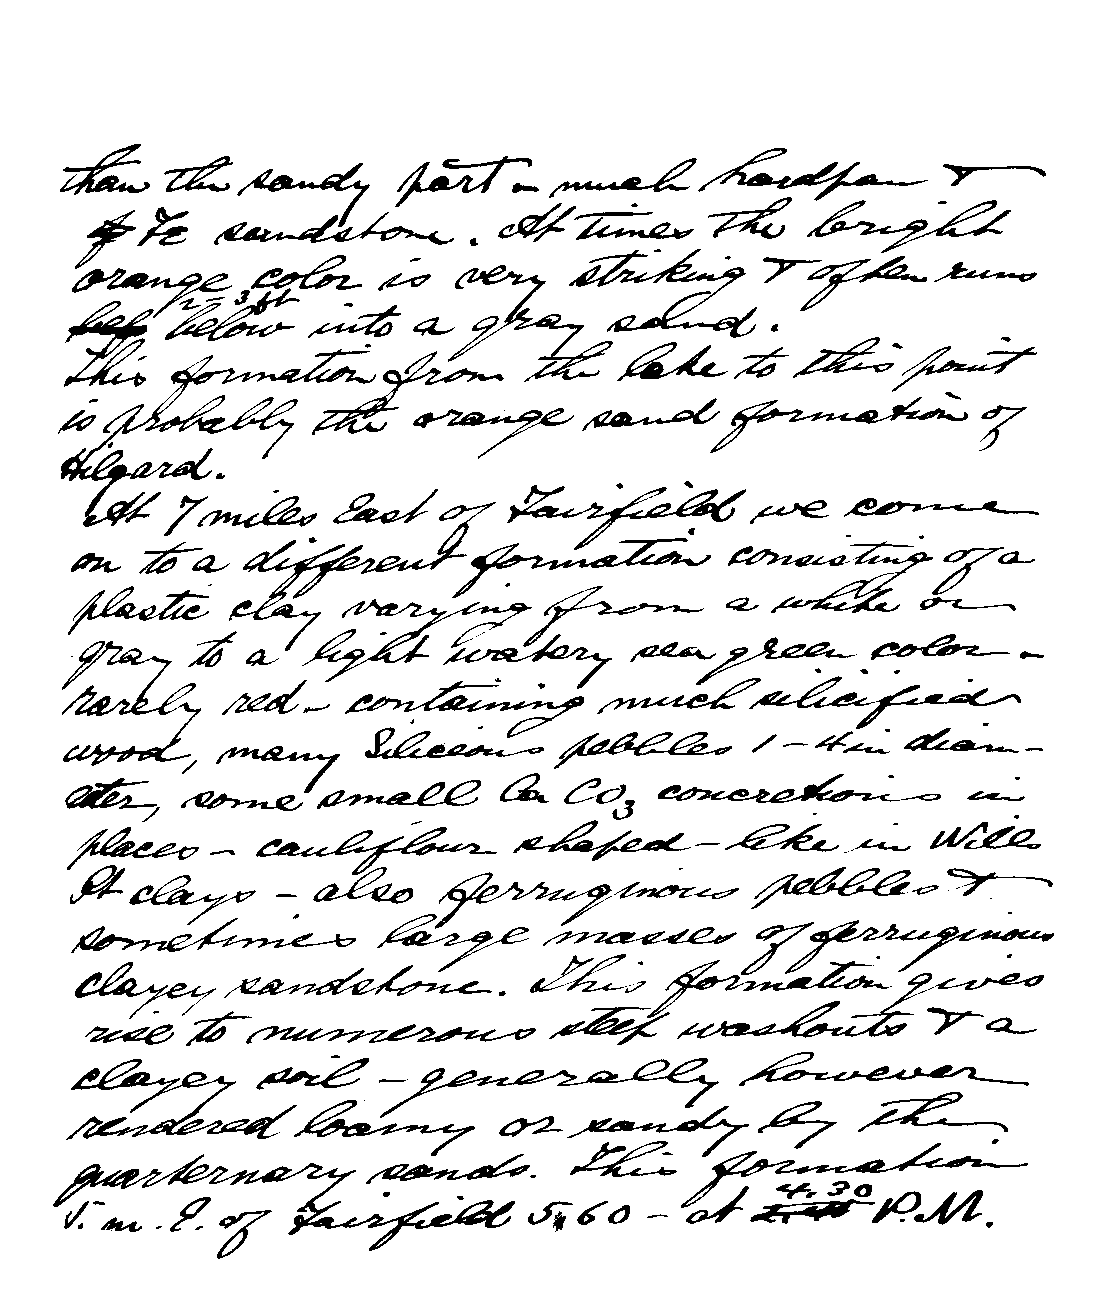 than the sandy part - much hardpan &
of Fe sandstone. At times the bright
orange color is very striking & often runs
2-3 ft
bel below into a gray sand.
This formation from the lake to this point
is probably the orange sand formation of
Hilgard.
At 7 miles East of Fairfield we come
on to a different formation consisting of a
plastic clay varying from a white or
gray to a light watery sea green color -
rarely red - containing much silicified
wood, many Siliceous pebbles 1-4 in diam-
eter, some small Ca CO3 concretions in
places - cauliflour shaped - like in Wills
Pt clays - also ferruginous pebbles &
sometimes large masses of ferruginous
clayey sandstone. This formation gives
rise to numerous steep washouts & a
clayey soil - generally however
rendered loamy or sandy by the
quarternary sands. This formation
4.30
5. m. E. of Fairfield 560 - at P.M.